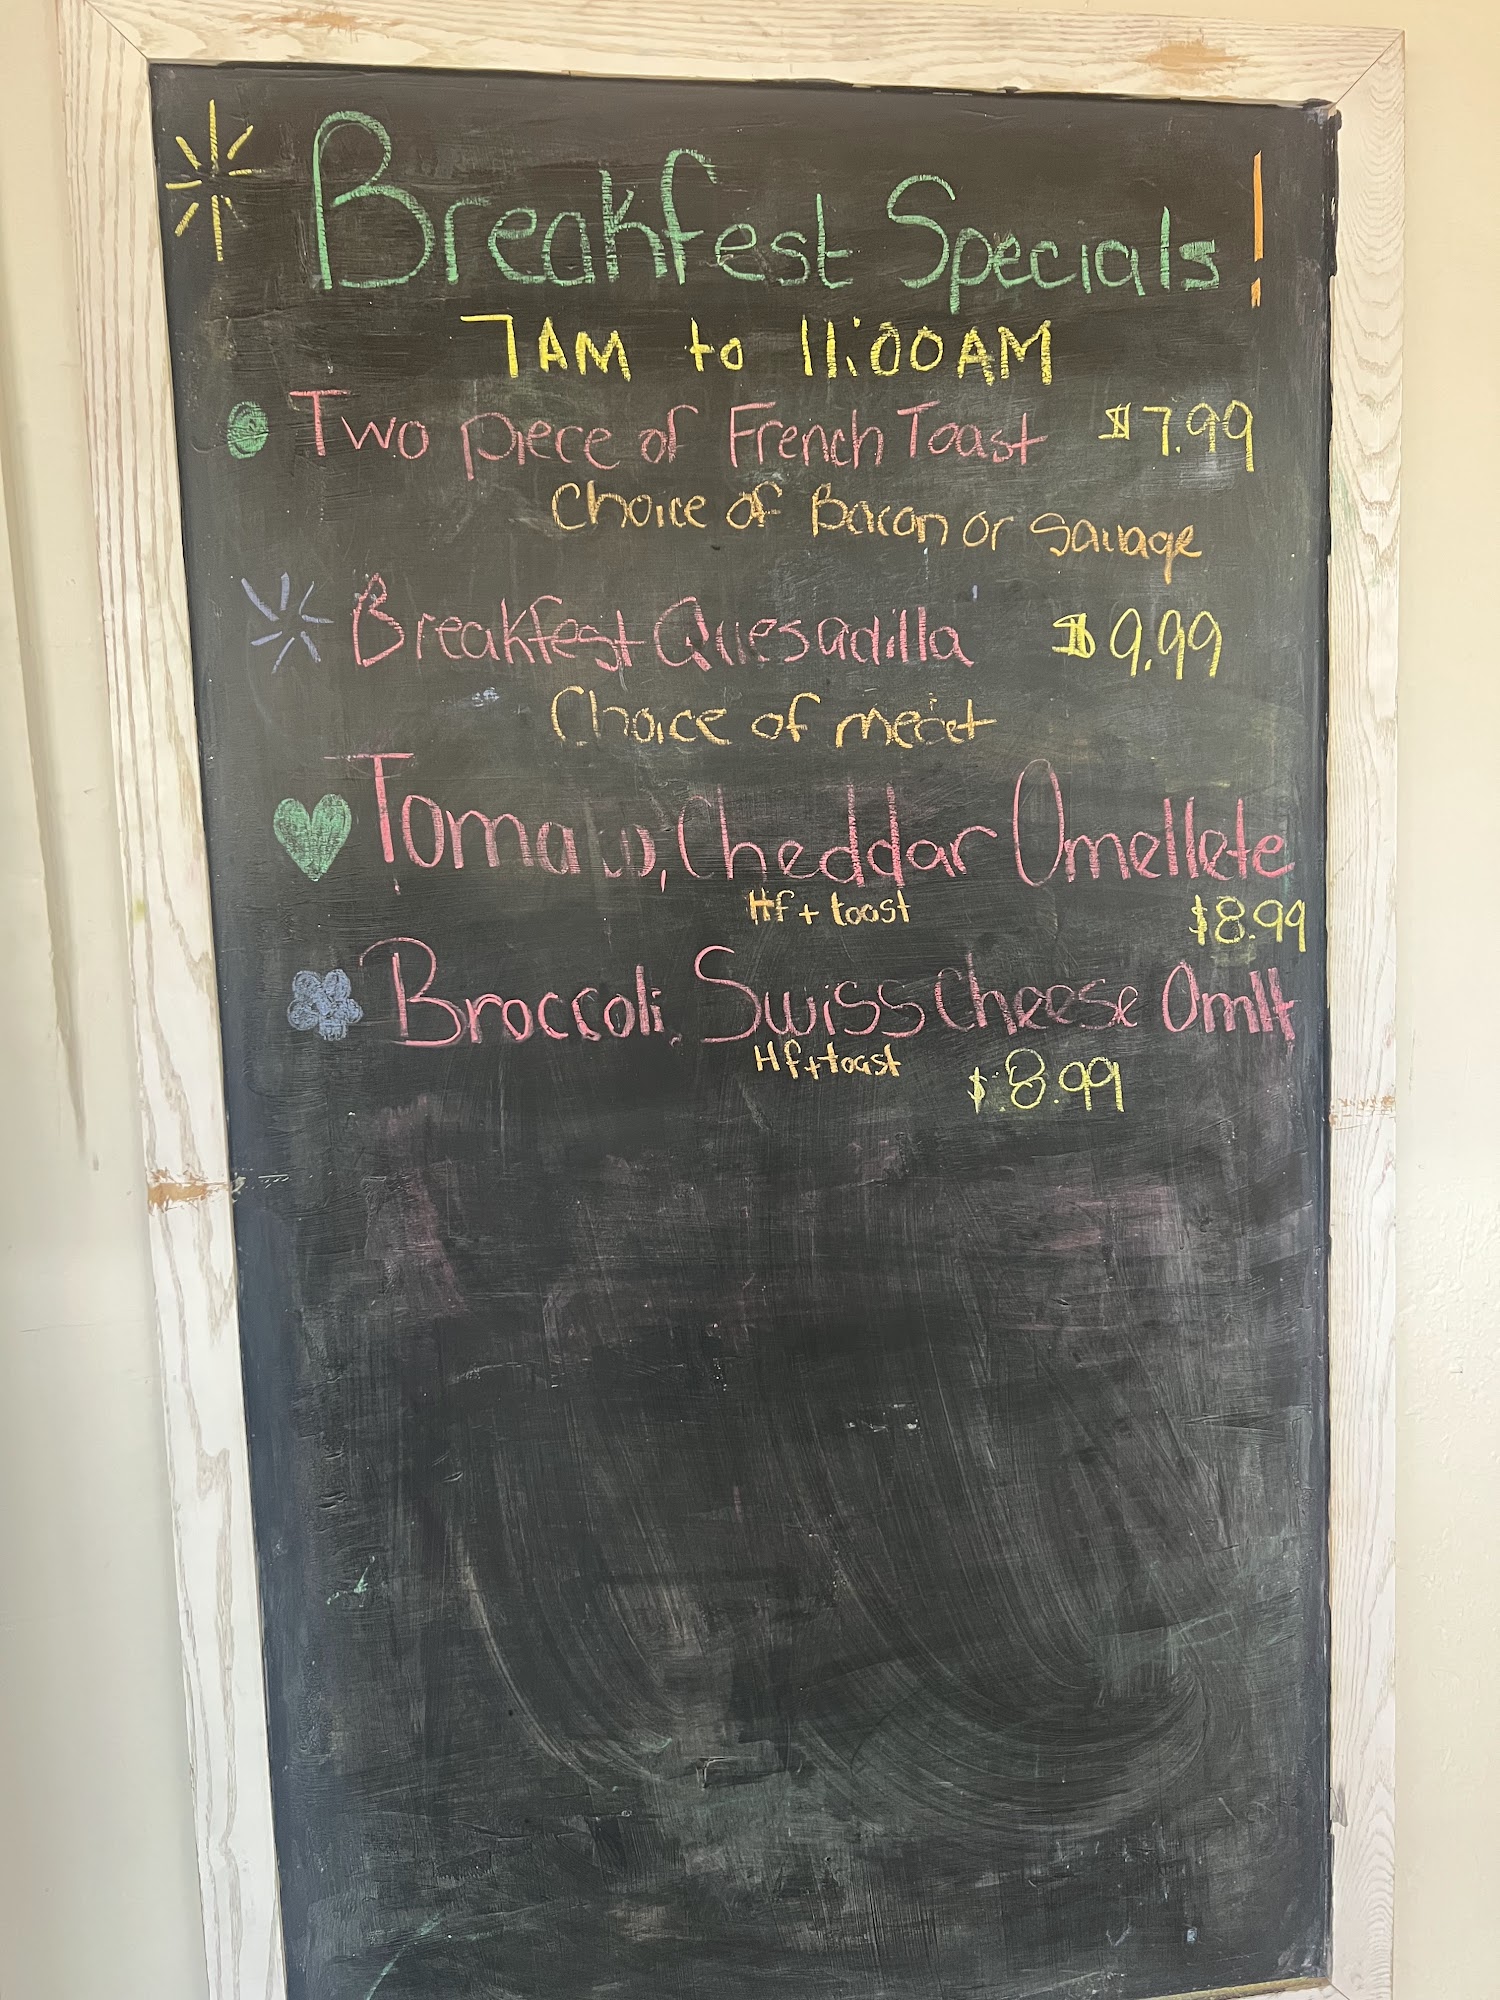 Breakfest Specials!
7AM to 11:00AM
Two piece of French Toast $7.99
Choice of Bacon or Sauage
Breakfest Quesadilla $9.99
Choice of meat
Cheddar Omellete
Hf + toast
$8.99
Broccoli, Swiss Cheese Omlt
Hf + toast
$8.99